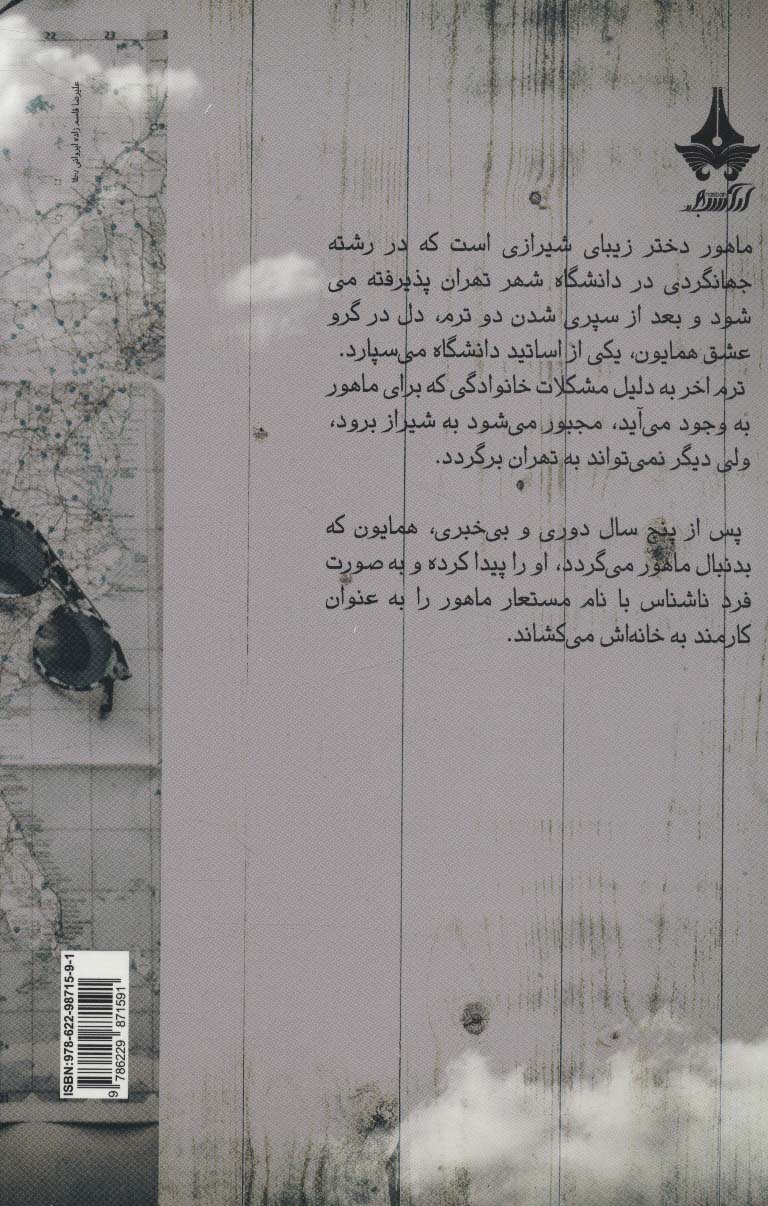 ماهور دختر زیبای شیرازی است که در رشته
جهانگردی در دانشگاه شهر تهران پذیرفته می
شود و بعد از سپری شدن دو ترم، دل در گرو
عشق همایون، یکی از اساتید دانشگاه می‌سپارد.
ترم اخر به دلیل مشکلات خانوادگی که برای ماهور
به وجود می‌آید، مجبور می‌شود به شیراز برود،
ولی دیگر نمی‌تواند به تهران برگردد.
پس از پنج سال دوری و بی‌خبری، همایون که
بدنبال ماهور می‌گردد، او را پیدا کرده و به صورت
فرد ناشناس با نام مستعار ماهور را به عنوان
کارمند به خانه‌اش می‌کشاند.
22
23
علیرضا قاسم زاده ایروانی
ISBN:978-622-98715-9-1
9 786229 871591